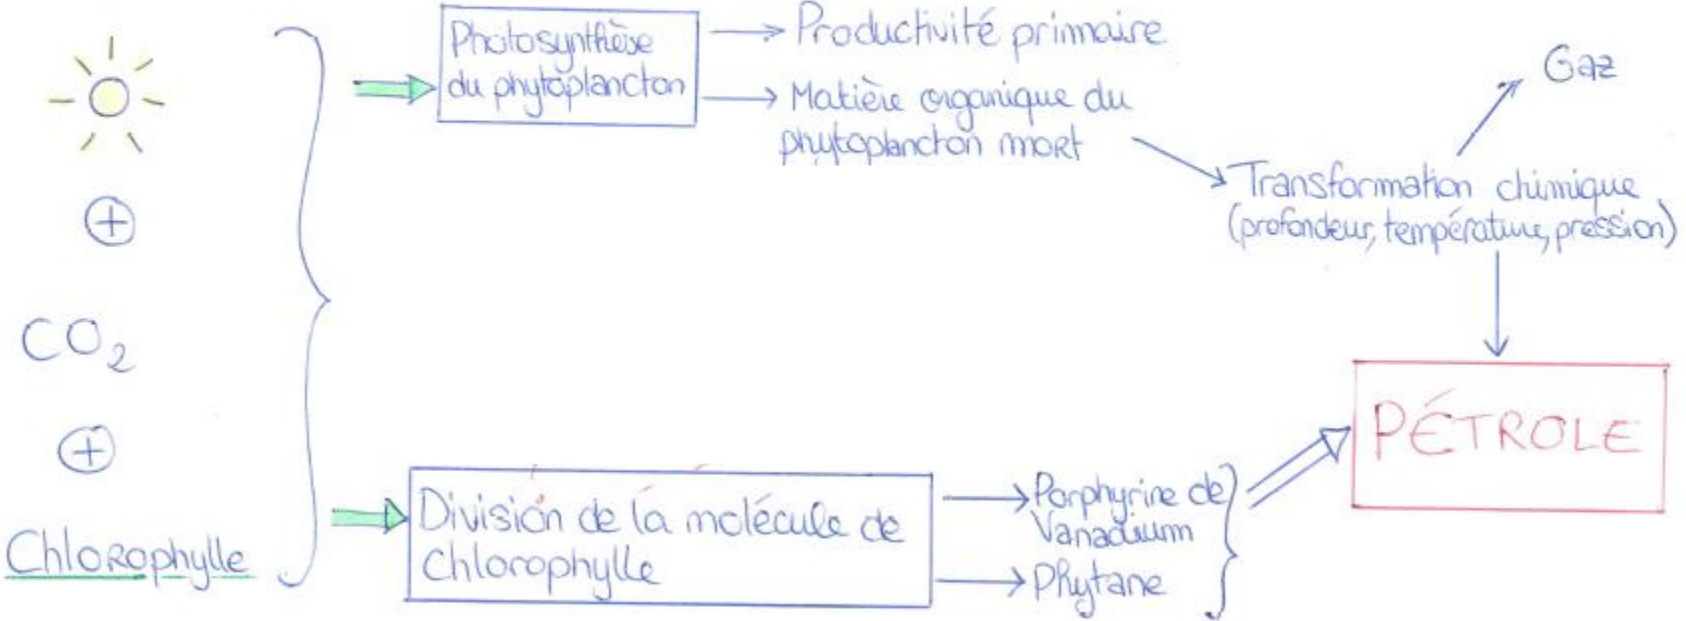 Photosynthèse
du phytoplancton
Productivité primaire
Matière organique du
phytoplancton mort
Gaz
Transformation chimique
(profondeur, température, pression)
PÉTROLE
+
CO₂
+
Chlorophylle
División de la molécule de
chlorophylle
Porphyrine de
Vanadium
Phytane